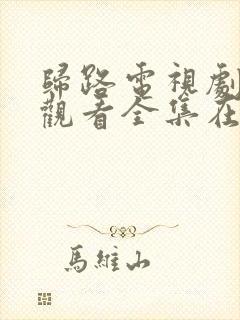 歸路電視劇
觀看全集在
馬維山